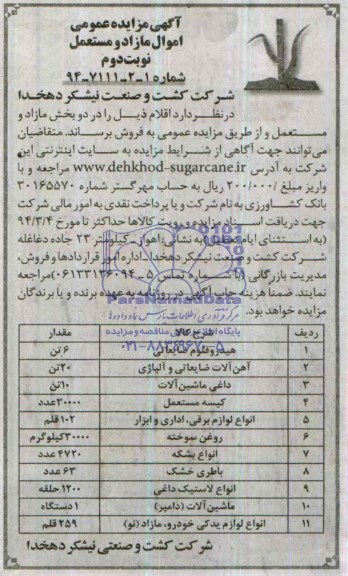 آگهی مزایده عمومی
اموال مازاد و مستعمل
نوبت دوم
شماره ۱-۲-۷۱۱۱-۹۴
شرکت کشت و صنعت نیشکر دهخدا
در نظر دارد اقلام ذیل را در دو بخش مازاد و
مستعمل و از طریق مزایده عمومی به فروش برساند. متقاضیان
می‌توانند جهت آگاهی از شرایط مزایده به سایت اینترنتی این
شرکت به آدرس www.dehkhod-sugarcane.ir مراجعه و با
واریز مبلغ ۲۰۰/۰۰۰ ریال به حساب مهرگستر شماره ۳۰۱۶۵۵۷۰
بانک کشاورزی به نام شرکت و یا پرداخت نقدی به امور مالی شرکت
جهت دریافت اسناد مزایده و رویت کالاها حداکثر تا مورخ ۹۴/۳/۴
(به استثنای ایام تعطیل) به نشانی: اهواز- کیلومتر ۲۳ جاده دغاغله
شرکت کشت و صنعت نیشکر دهخدا، اداره امور قراردادها و فروش،
مدیریت بازرگانی (با شماره تماس ۵-۰۶۱۳۳۱۳۶۰۹۴) مراجعه
نمایند. ضمنا هزینه چاپ آگهی در روزنامه به عهده برنده و یا برندگان
مزایده خواهد بود.
ParsNamadData
پایگاه اطلاع رسانی مناقصه و مزایده
۰۲۱-۸۸۳۴۹۶۷۰-۵
ردیف کالا مقدار
۱ هیدروفلوم ضایعاتی ۶ تن
۲ آهن آلات ضایعاتی و آلیاژی ۲۰ تن
۳ داغی ماشین آلات ۱۰ تن
۴ کیسه مستعمل ۳۰۰۰۰ عدد
۵ انواع لوازم برقی، اداری و ابزار ۱۰۲ قلم
۶ روغن سوخته ۳۰۰۰۰ کیلوگرم
۷ انواع بشکه ۴۷۲۰ عدد
۸ باطری خشک ۶۳ عدد
۹ انواع لاستیک داغی ۱۲۰۰ حلقه
۱۰ ماشین آلات (دامپر) ۱ دستگاه
۱۱ انواع لوازم یدکی خودرو، مازاد (نو) ۲۵۹ قلم
شرکت کشت و صنعتی نیشکر دهخدا